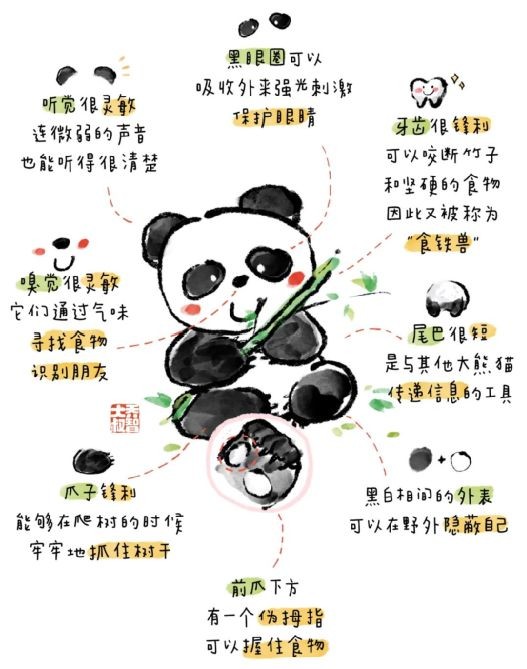 黑眼圈可以
吸收外来强光刺激
保护眼睛
听觉很灵敏
连微弱的声音
也能听得很清楚
牙齿很锋利
可以咬断竹子
和坚硬的食物
因此又被称为
“食铁兽”
嗅觉很灵敏
它们通过气味
寻找食物
识别朋友
尾巴很短
是与其他大熊猫
传递信息的工具
爪子锋利
能够在爬树的时候
牢牢地抓住树干
黑白相间的外表
可以在野外隐蔽自己
前爪下方
有一个伪拇指
可以握住食物